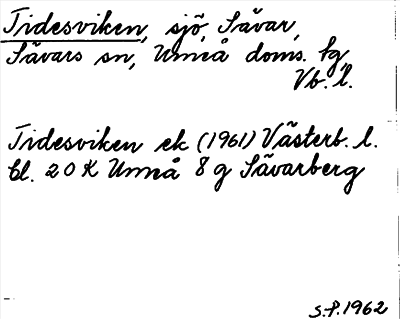 Tidesviken, sjö, Sävar,
Sävars sn, Umeå doms. tg
Vb. l.
Tidesviken ek (1961) Västerb. l.
bl. 20 K Umeå 8 g Sävarberg
S.P. 1962